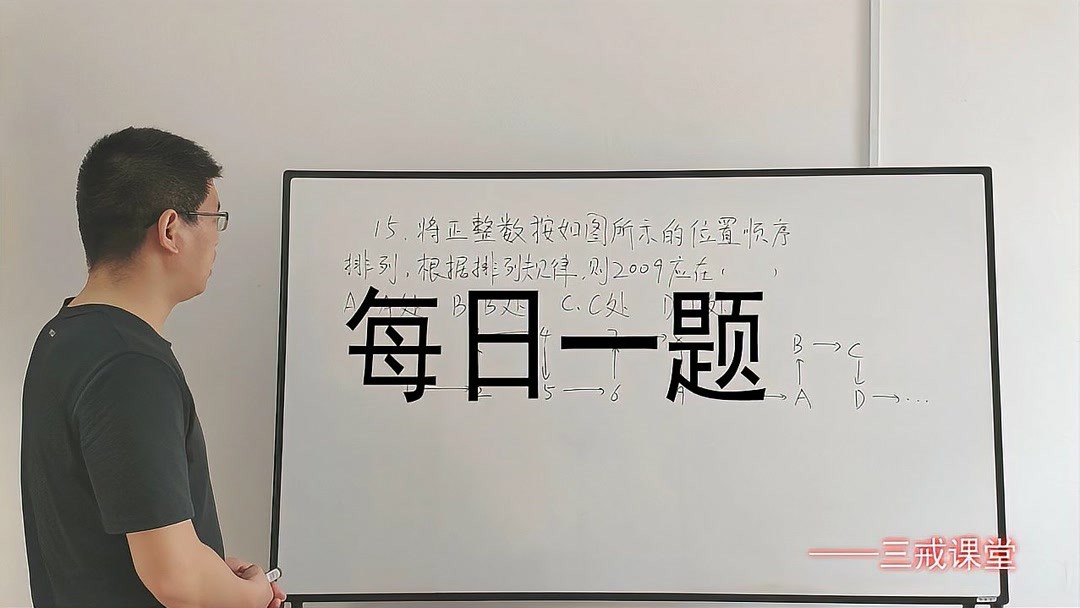 15.将正整数按如图所示的位置顺序
排列,根据排列规律,则2009应在( )
A.A处 B.B处 C.C处 D
每日一题
4 7
B→C
5→6 →A D→…
——三戒课堂